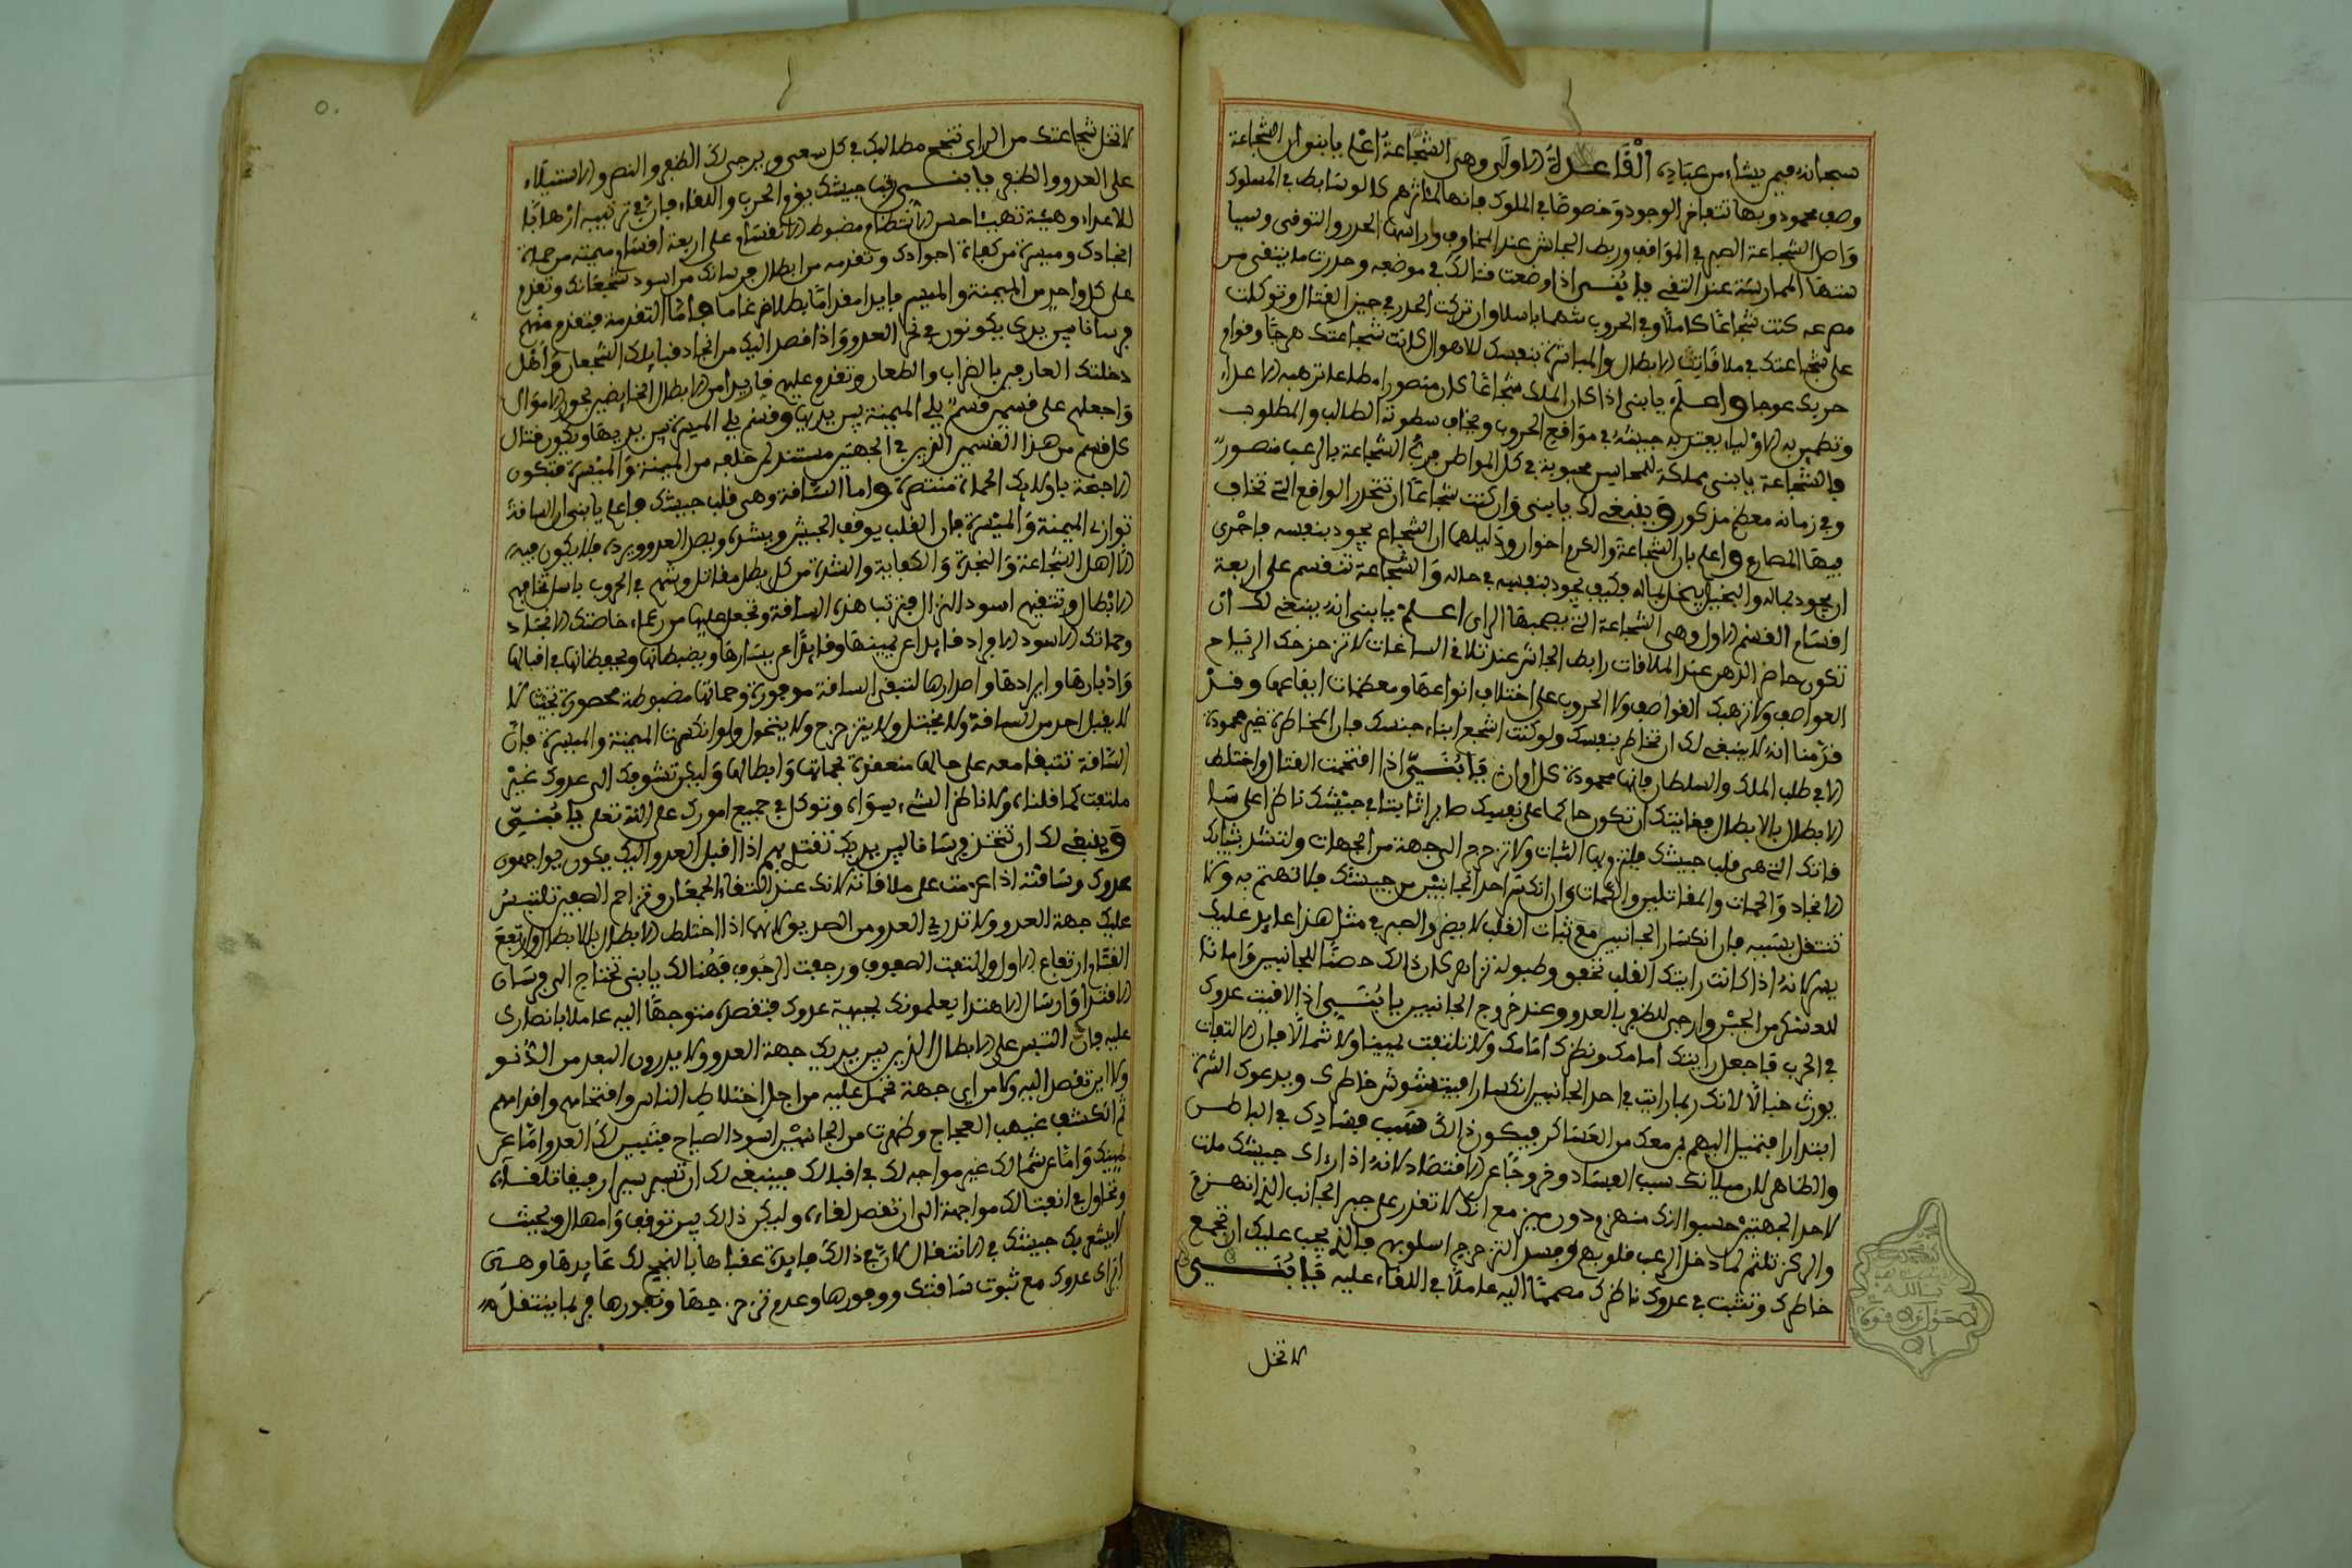 سبحانه فيمن يشاء من عباده القاعدة الاولى وهى الشجاعة اعلم يا بنى ان الشجاعة
وصف محمود وبها تتفاخر الوجود وخصوصا في الملوك فانها لمئاثرهم كالوسايط في السلوك
واصل الشجاعة الصبر في المواقف وربط الجاش عند المخاوف وراسها الحذر والتوقى وسيا
ستها الممارسة عند التقى يا بنى اذا وضعت قتالك في موضعه وحذرت ما يتقى من
مصرعه كنت شجاعا كاملا وفي الحروب شهما باسلا وان تركت الحذر في حيز القتال وتوكلت
على شجاعتك في ملاقات الابطال والمباشرة بنفسك للاهوال كانت شجاعتك هرجا وقوام
حربك عوجا واعلم يا بنى اذا كان الملك شجاعا كان منصورا مطاعا ترهبه الاعداء
وتطمئن به الاولياء يعتد به جيشه في مواقع الحروب ويخاف سطوته الطالب والمطلوب
فالشجاعة يا بنى مملكة للمحاسن محبوبة في كل المواطن الشجاعة بالرعب منصور
وفي زمانه معظم مذكور وينبغى لك يا بنى وان كنت شجاعا ان تتحذر المواقع التى تخاف
فيها المصارع واعلم بان الشجاعة والكرم اخوان ودليلهما ان الشجاع يجود بنفسه فاحرى
ان يجود بماله والبخيل يبخل بماله فكيف يجود بنفسه في حاله والشجاعة تنقسم على اربعة
اقسام القسم الاول وهى الشجاعة التى يصحبها الراى اعلم يا بنى انه ينبغى لك ان
تكون حاضر الذهن عند الملاقات رابط الجاش عند تلافى الساعات لا تزحزحك الرياح
العواصف ولا ترهبك القواصف ولا الحروب على اختلاف انواعها ومعظمات ايقاعها وقد
قدمنا انه لا ينبغى لك ان تخاطر بنفسك ولو كنت اشجع ابناء جنسك فان المخاطرة غير محمودة
الا في طلب الملك والسلطان فانها محمودة كل اوان يا بنى اذا افتحمت القتال واختلط
الابطال بالابطال فغايتك ان تكون حاكما على نفسك صابرا ثابتا في جيشك ناظرا على سا
قاتك التى هى قلب جيشك فيلتزمها الثبات ولا تزحزح الى جهة من الجهات ولتشد بثباتك
الانجاد والحمات والمقاتلين والكمات وان انكسر احد الجانبين من جيشك فلا تهتم به ولا
تنتقل بسببه فان انكسار الجانبين مع ثبات القلب لا يضر والصبر في مثل هذا عايد عليك
يسر لانه اذا كانت رايتك القلب تخفق وطبوله تزاحر كان ذالك حصنا للجانبين وامانا
للعسكر من الجيش وارجى للظفر بالعدو وعند خروج الجانبين يا بنى اذا لاقيت عدوك
في الحرب فاجعل رايتك امامك ونظرك امامك ولا تلتفت يمينا ولا شمالا فان الالتفات
يورث خبالا لانك ربما رايت في احد الجانبين انكسارا فيتشوش خاطرك ويدعوك الشره
ابتدارا فتميل اليهم بمن معك من العساكر فيكون ذالك سبب فسادك في الباطن
والظاهر لان ميلانك سبب الفساد وخروجا عن الاقتصاد لانه اذا راى جيشك ملت
لاحد الجهتين حسبوا انك منهزم دون مين مع انك لا تقدر على جبر الجانب الذى انهزم
والركز تلثم لما دخل الرعب قلوبهم وفسد التزحزح اسلوبهم فالذى يجب عليك ان تجمع
خاطرك وتثبت في عدوك ناظرك مصمما اليه عاملا في اللقاء عليه يا بنى
لا تخل
لا تخل شجاعتك من الراى تنجح مطالبك في كل سعى ويرجى لك الظفر والنصر والاستيلاء
على العدو والظفر يا بنى رتب جيشك يوم الحرب واللقاء فان في ترتيبه ارهابا
للاعداء وهيئة تهيبا حسن الانتظام مضبوط الاقسام على اربعة اقسام ميمنة من حملة
انجادك وميسرة من كفاة اجوادك وتقدمه من ابطال فرسانك من اسود شجعانك وتقدم
على كل واحد من الميمنة والميسرة قايدا مقداما بطلا ضرغاما واما التقدمة فتقدم منهم
فرسانا بين يدى يكونون في نحر العدو واذا قصد اليك من انجاد قبايلك الشجعان واهل
دخلتك العارفين بالضراب والطعان وتقدم عليهم قايدا من الابطال الخايضين بحور الاهوال
واجعلهم على قسمين قسم يلى الميمنة بين يديها وقسم يلى الميسرة بين يديها ويكون قتال
كل قسم من هذا القسمين الذين في الجهتين مستند لمن خلفه من الميمنة والميسرة فتكون
الاجفة باولايك الحماة منتصرة واما الساقة وهى قلب جيشك فاعلم يا بنى ان الساقة
توازى الميمنة والميسرة فان القلب يوقف الجيش ويشده ويصد العدو ويرده فلا يكون فيه
الا اهل الشجاعة والنجدة والكفاية والشدة من كل بطل مقاتل وشهم في الحروب باسل تخافهم
الابطال وتتقيهم اسود النزال فترتب هذه الساقة وتجعل عليها من زعماء خاصتك الانجاد
وحماتك الاسود الاوراد قايدا عن يمينها وقايدا عن يسارها ويضبطانها ويحفظانها في اقبالها
وادبارها وايرادها واصدارها لتبقى الساقة موفورة وحماتها مضبوطة محصورة بحيث لا
لا يقبل احد من الساقة ولا يختل ولا يتزحزح ولا يتحول ولو انكسرت الميمنة والميسرة فان
الساقة تتبقا معه على حالها منعقدة بحماتها وابطالها وليكن تشوفك الى عدوك غير
ملتفت كما قلناه ولا ناظر الشىء يسواه وتتوكل في جميع امورك على الله تعلى يا بنى
وينبغى لك ان تتخذ فرسانا بين يديك تقتدى بهم اذا اقبل العدو اليك يكون يواجهون
عدوك وساقته اذا عزمت على ملاقاته لانك عند التقاء الجمعان وتزاحم الصفين تلتبس
عليك جهة العدو ولا تدرى العدو من الصديق لانها اذا اختلط الابطال بالابطال وارتفع
القتام ارتفاع الاول والتفت الصفوف ورجفت الرجوف فهنالك يا بنى تحتاج الى فرسان
الاقتدا وارسال الاهتدا يعلمونك بجبهة عدوك فتقصده متوجها اليه عاملا بانصارى
عليه فان التبس على الابطال الذين بين يديك جهة العدو ولا يدرون البعد من الدنو
ولا اين تقصد اليه ولا من اى جهة تحمل عليه من اجل اختلاط الناس وافتحامهم واقدامهم
ثم انكشف غيهب العجاج وظهرت من الجانبين اسود الصباح فتبين لك العدو اما عن
يمينك واما عن شمالك غير مواجه لك في اقبالك فينبغى لك ان تسير سيرا رفيقا تلقاءه
وتحاول في انفتالك مواجهة الى ان تقصد لقاءه وليكن ذالك بين توقف وامهال وبحيث
لا يشعر بك جيشك في الانتقال لان في ذالك فايدة عقباها بالنجح لك عايدها ومتى
اتراى عدوك مع ثبوت ساقتك ووفورها وعدم تزحزحها ونفورها فربما ينتقل